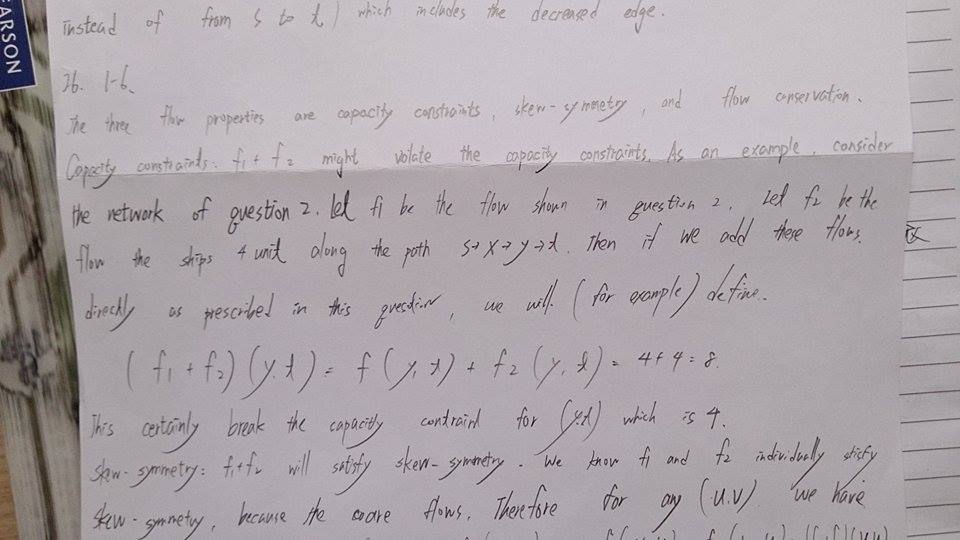 EARSON
instead of from s to t ) which includes the decreased edge.
26. 1-6.
The three flow properties are capacity constraints, skew-symmetry, and flow conservation.
Capacity constraints: f1 + f2 might volate the capacity constraints. As an example, consider
the network of question 2. Let f1 be the flow shown in question 2. Let f2 be the
flow the ships 4 unit along the path s→x→y→t. Then if we add these flows
directly as prescribed in this question, we will (for example) define.
(f1 + f2)(y.t) = f(y,t) + f2(y,t) = 4+4=8.
This certainly break the capacity contraint for (y.t) which is 4.
skew-symmetry: f1+f2 will satisfy skew-symmetry. We know f1 and f2 individually stisfy
skew-symmetry, because the flows. Therefore for any (u.v) we have